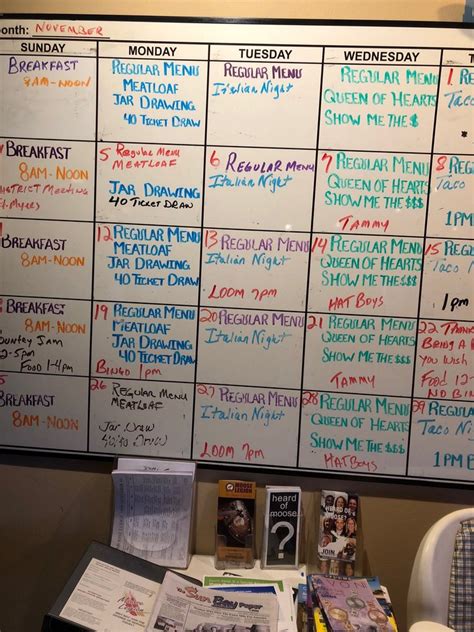 onth: NOVEMBER
SUNDAY MONDAY TUESDAY WEDNESDAY
BREAKFAST
8AM-NOON
REGULAR MENU
MEATLOAF
JAR DRAWING
40 TICKET DRAW
REGULAR MENU
Italian Night
REGULAR MENU
QUEEN OF HEARTS
SHOW ME THE $
1
Taco
1PM
BREAKFAST
8AM-NOON
DISTRICT MEETING
5 Regular Menu
MEATLOAF
JAR DRAWING
40 TICKET DRAW
6 REGULAR MENU
Italian Night
7 REGULAR MENU
QUEEN OF HEARTS
SHOW ME THE $$$
TAMMY
8
Taco
1PM
BREAKFAST
8AM-NOON
12 REGULAR MENU
MEATLOAF
JAR DRAWING
40 TICKET DRAW
13 REGULAR MENU
Italian Night
LOOM 7pm
14 REGULAR MENU
QUEEN OF HEARTS
SHOW ME THE $$$
HAT BOYS
15
Taco
1pm
BREAKFAST
8AM-NOON
ountry Jam
2-5pm
Food 1-4pm
19 REGULAR MENU
MEATLOAF
JAR DRAWING
40 TICKET DRAW
BINGO 1PM
20 REGULAR MENU
Italian Night
21 REGULAR MENU
QUEEN OF HEARTS
SHOW ME THE $$$
TAMMY
22
BEING A
YOU WISH
FOOD 12-
NO BINGO
BREAKFAST
8AM-NOON
26 REGULAR MENU
MEATLOAF
Jar Draw
40/40 DRAW
27 REGULAR MENU
Italian Night
LOOM 7pm
28 REGULAR MENU
QUEEN OF HEARTS
SHOW ME THE $$$
HAT BOYS
29
Taco Ni
1PM B
MOOSE
LEGION
heard of
moose
?
HEARD OF
MOOSE?
JOIN
Sun Bay Paper